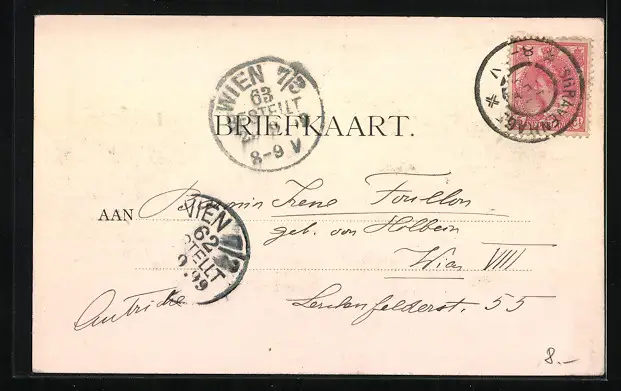 WIEN 7/3
63
BESTELLT
8-9 V
'SGRAVENHAGE
8- V
BRIEFKAART.
AAN
Irene Foullon
geb. von Holbein
WIEN 7/2
62
STELLT
2.99
Wien VIII
Autriche
Lerchenfelderst. 55
8.-